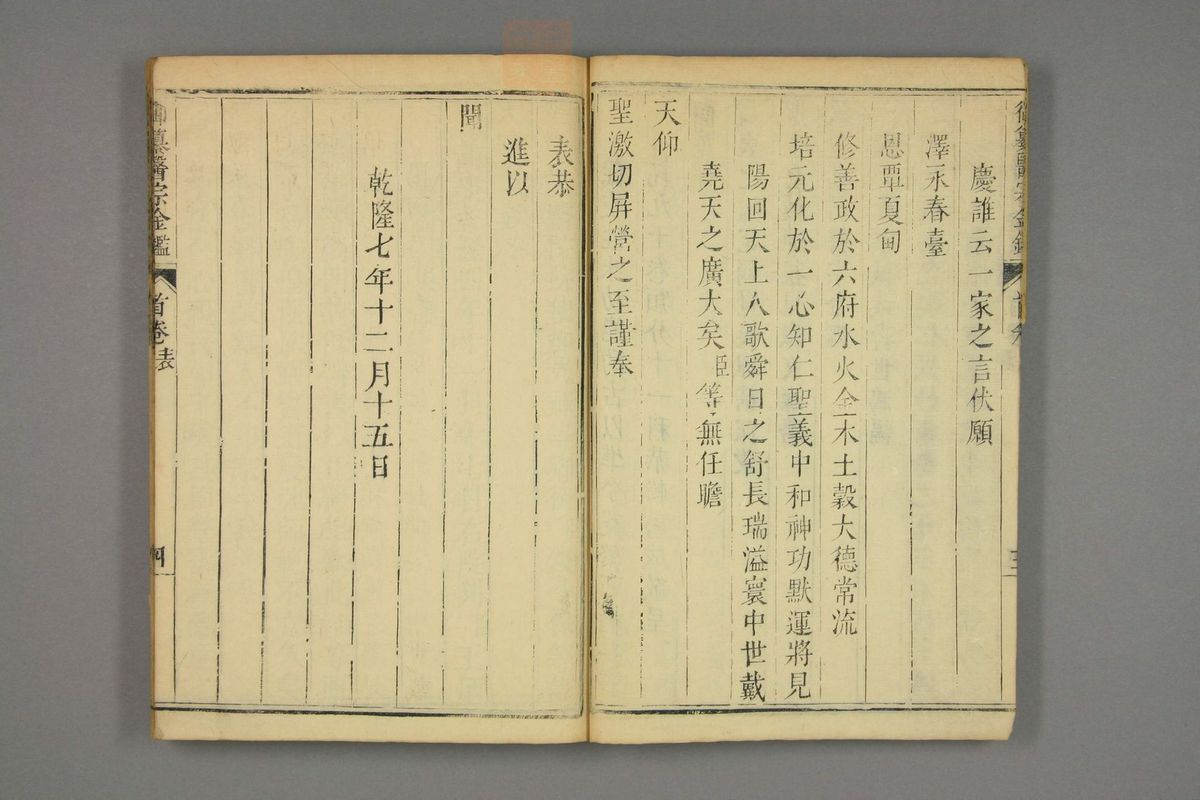 御纂醫宗金鑑
三
慶誰云一家之言伏願
澤永春臺
恩覃夏甸
修善政於六府水火金木土穀大德常流
培元化於一心知仁聖義中和神功默運將見
陽回天上人歌舜日之舒長瑞溢寰中世戴
堯天之廣大矣臣等無任瞻
天仰
聖激切屏營之至謹奉
表恭
進以
聞
乾隆七年十二月十五日
御纂醫宗金鑑
首卷 表
四